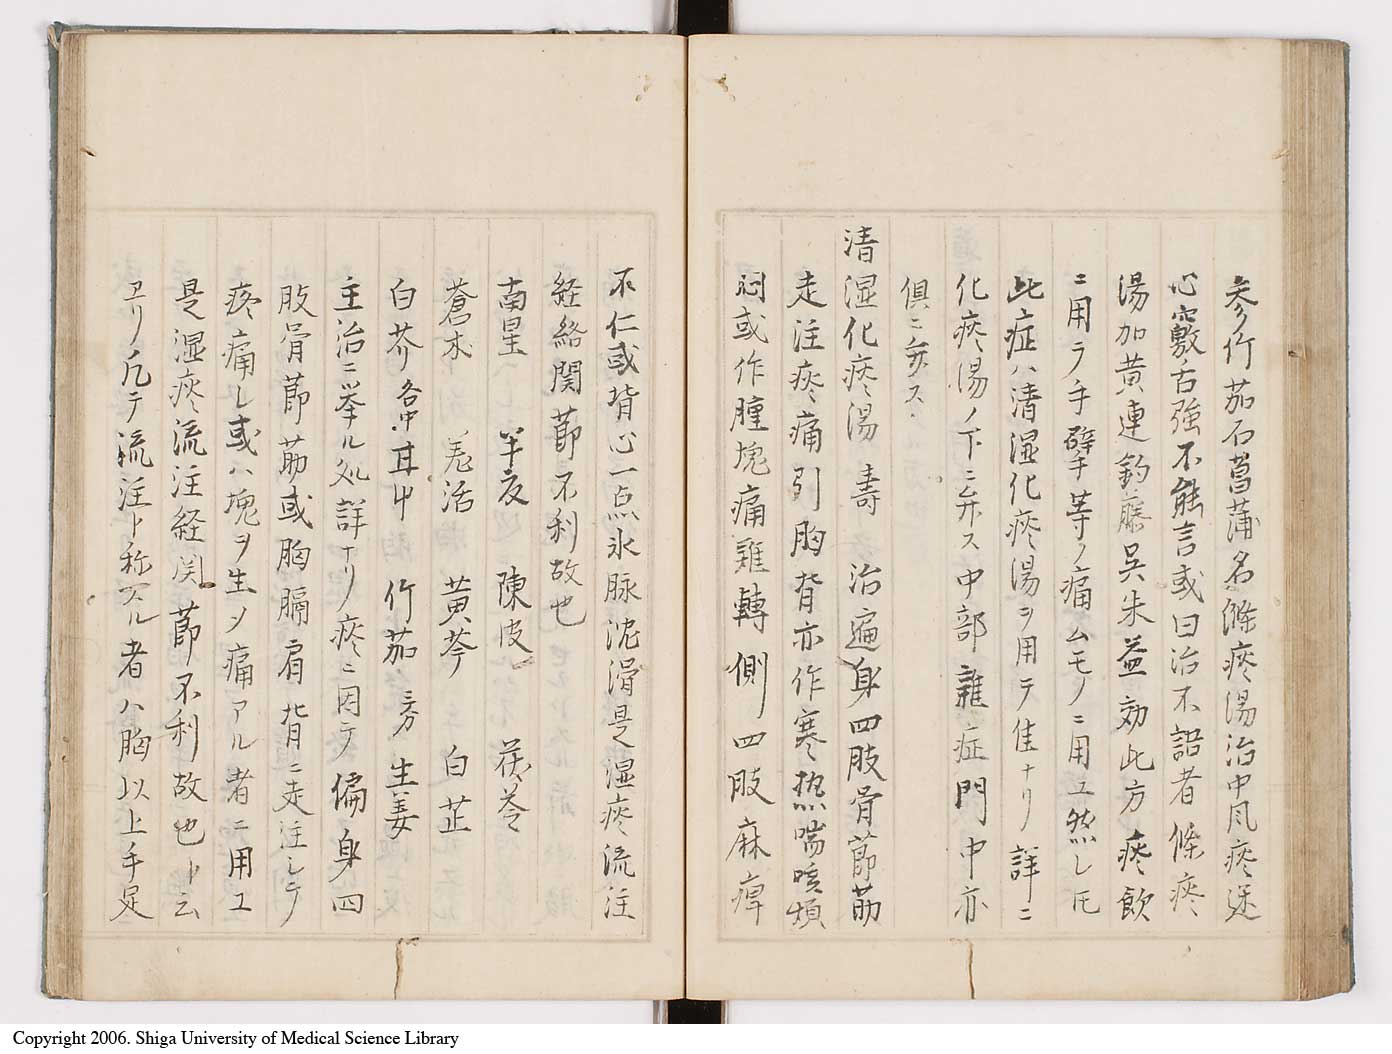 参竹茹石菖蒲名滌痰湯治中风痰迷
心竅舌強不能言或曰治不語者滌痰
湯加黄連釣藤呉朱益効此方痰飲
ニ用ラ手臂等ノ痛ムモノニ用ユ然レ𪜈
此症ハ清湿化痰湯ヲ用テ佳ナリ詳ニ
化痰湯ノ下ニ弁ス中部雑症門中亦
俱ニ弁ス
清湿化痰湯 壽 治遍身四肢骨節筋
走注疼痛引胸背亦作寒热喘咳煩
悶或作腫塊痛難轉側四肢麻痺
不仁或背心一点氷脉沈滑是湿痰流注
経絡関節不利故也
南星 半夏 陳皮 茯苓
蒼朮 羌活 黄芩 白芷
白芥各中 甘小 竹茹 生姜
主治ニ挙ル処詳ナリ痰ニ因テ偏身四
肢骨節筋或胸膈肩背ニ走注シテ
疼痛シ或ハ塊ヲ生ヲ痛アル者ニ用ユ
是湿痰流注経関節不利故也ト云
ヨリ凡テ流注ト称スル者ハ胸以上手足